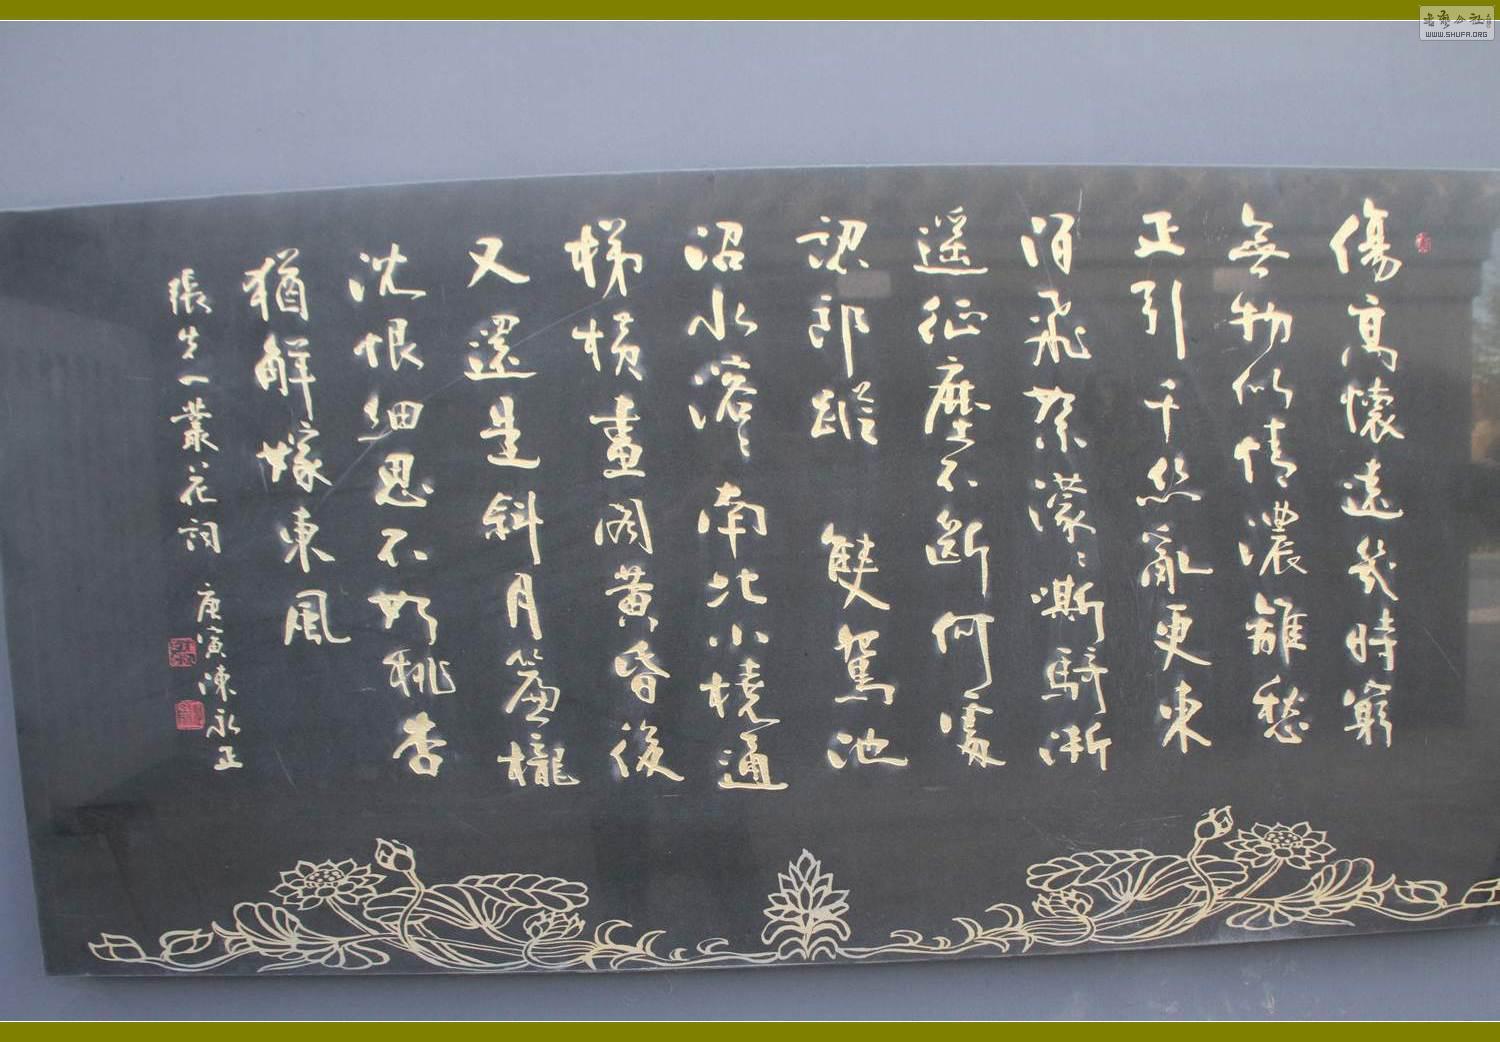 傷高懷遠幾時窮
無物似情濃離愁
正引千丝亂更東
陌飛絮濛〻嘶騎漸
遥征塵不斷何處
認郎蹤 雙鴛池
沼水溶〻南北小橈通
梯橫畫閣黃昏後
又還是斜月簾櫳
沈恨細思不如桃杏
猶解嫁東風
張先一叢花詞 庚寅陳永正
WWW.SHUFA.ORG